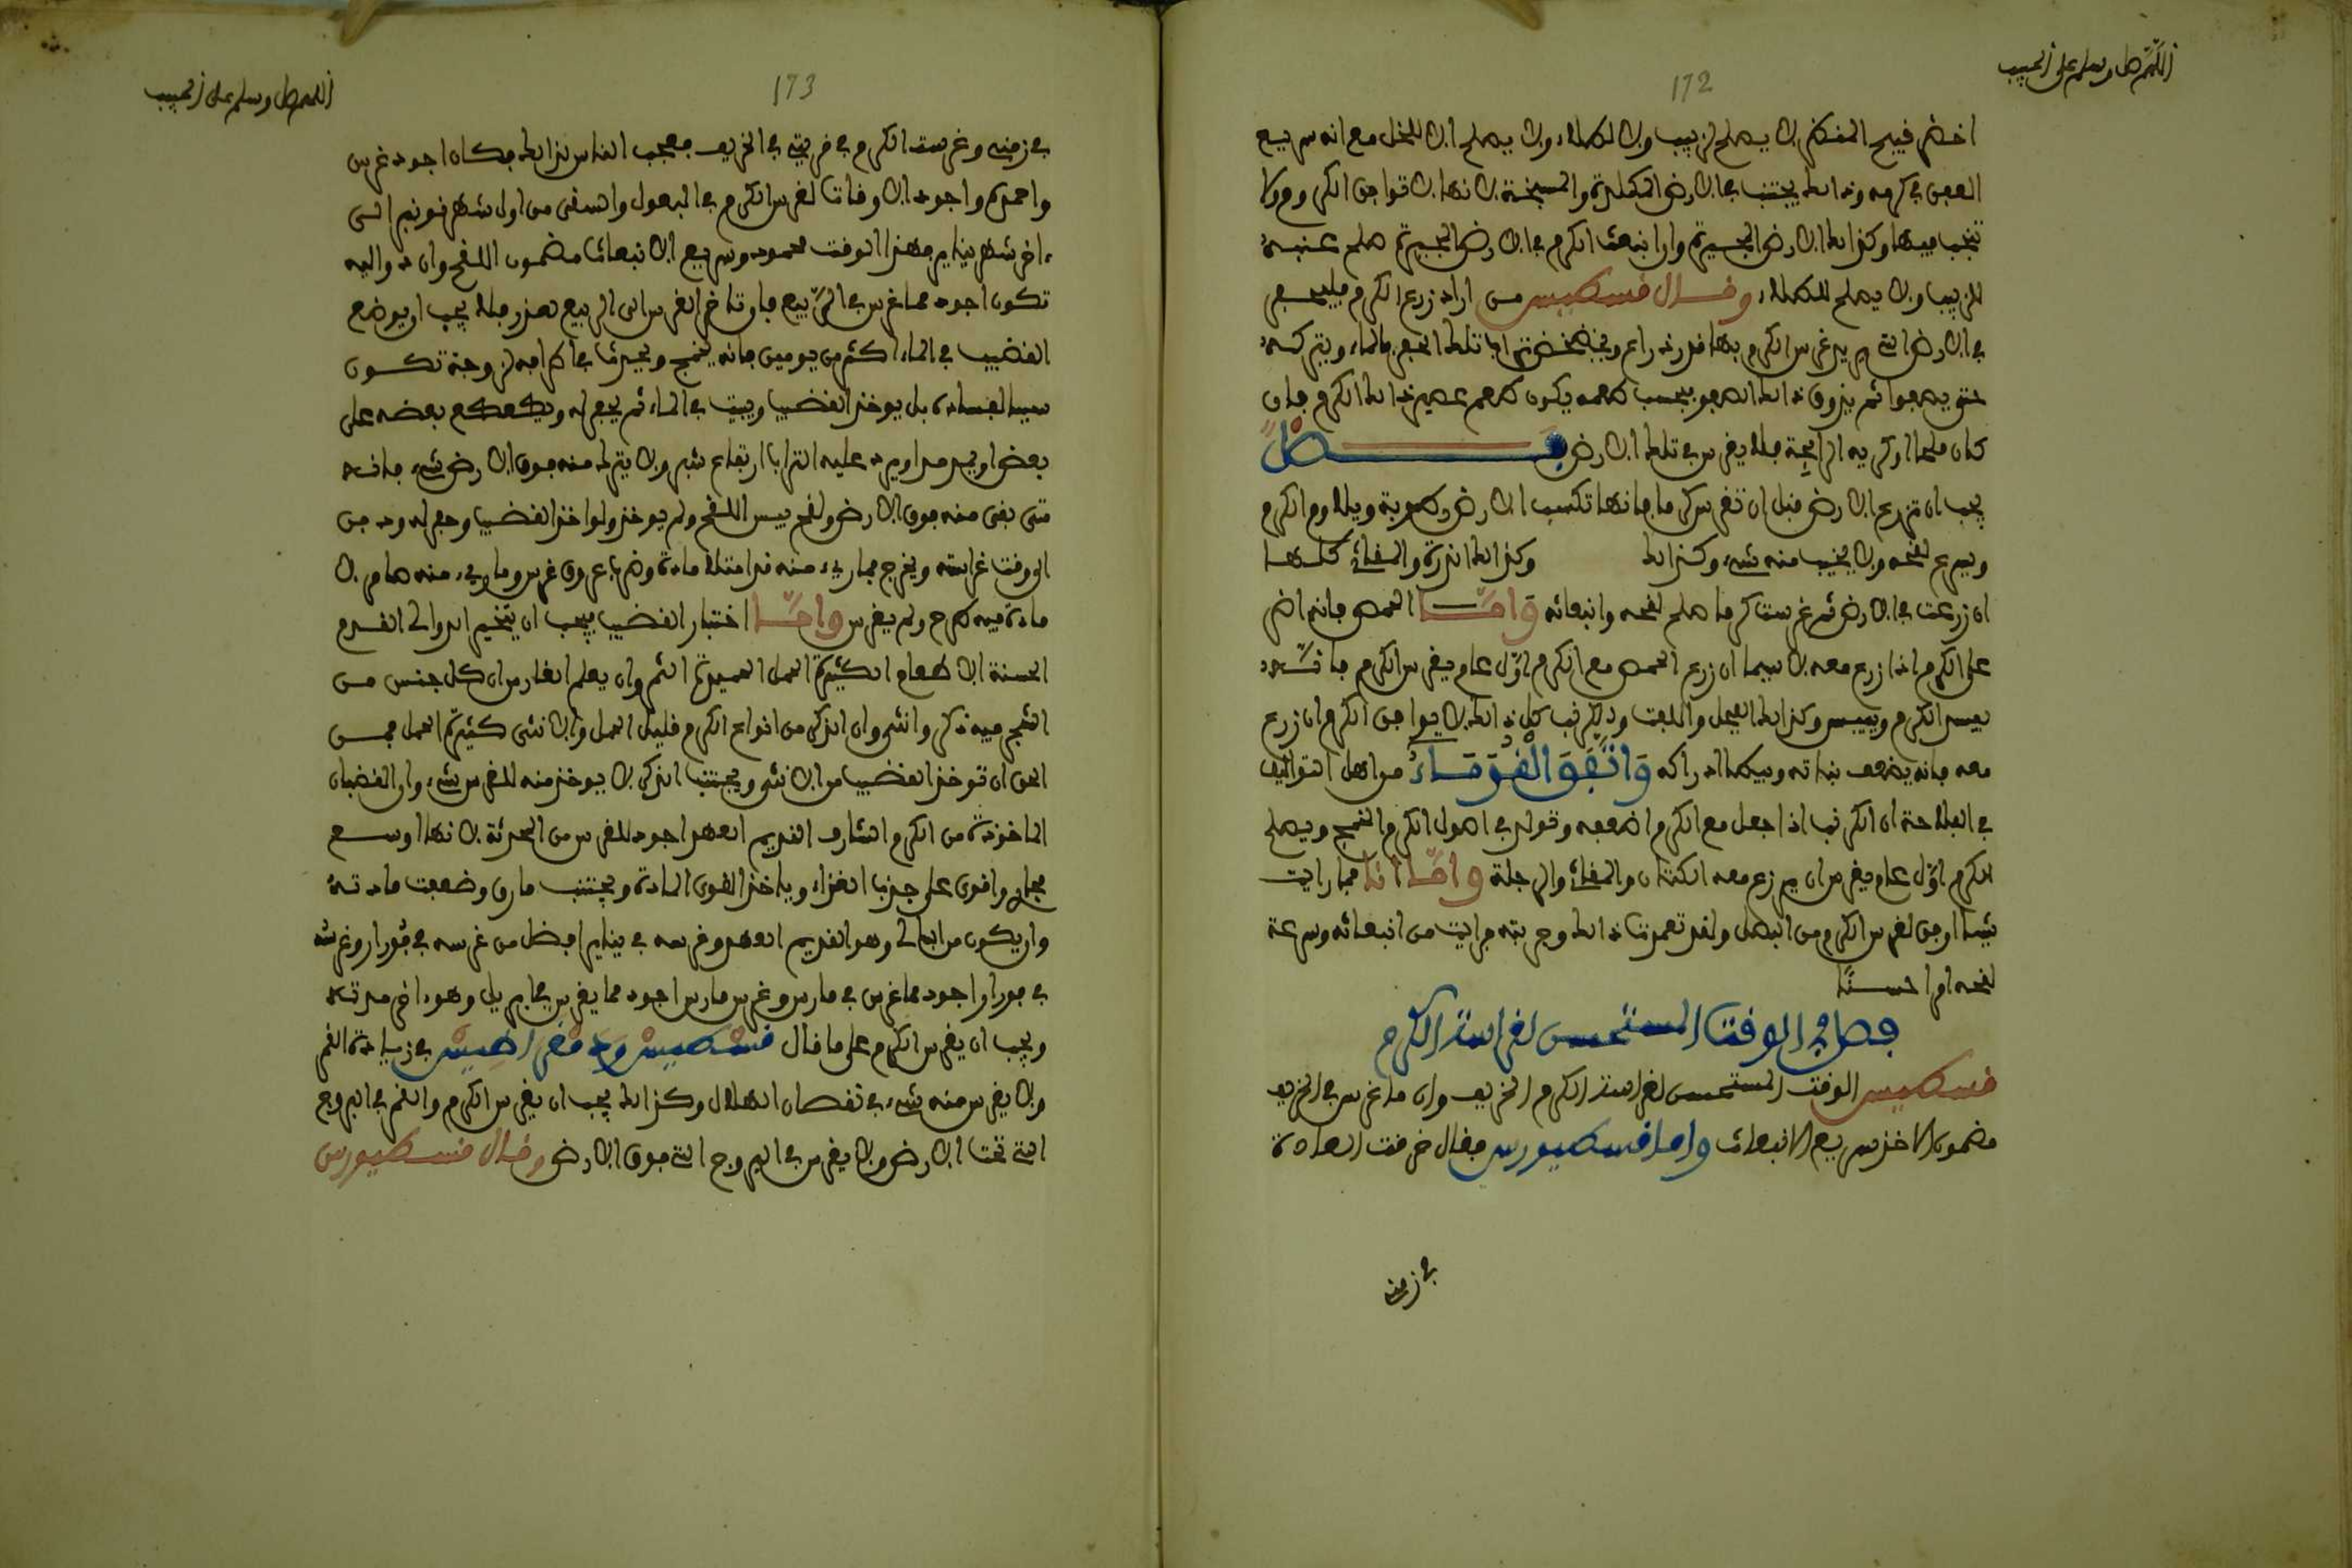 اللهم صل وسلم على الحبيب
172
اخضر قبيح المنظر لا يصلح لزبيب ولا لطلاء ولا يصلح الا للخل مع انه سريع
العفن في كرمه وكذلك يجتنب في الارض والسبخة لانها لا توافق الكروم ولا
تنجب فيها وكذلك الارض الجيرية وان انبعث الكرم في الارض الجيرية صلح عنبه
للزبيب ولا يصلح للطلاء وقال قسطيس من اراد زرع الكرم فليحفر
في الارض التي يريد غرس الكرم بها قدر ذراع تلك الحفر بالماء ويتركه
حتى يصفوا ثم يذوق ذلك الصفو فبحسب طعمه يكون طعم عصير ذلك الكرم فان
كان ملحا او كريه الرايحة فلا يغرس في تلك الارض فصل
يجب ان تزرع الارض قبل ان تغرس كرما فانها تكسب الارض رطوبة ويلاوم الكرم
ويسرع لقحه ولا يخيب منه شيء وكذلك وكذلك الذرة والمقاثي كلها
ان زرعت في الارض ثم غرست كرما صلح لقحه وانبعاثه واما الحمص فانه اضر
على الكرم اذا زرع معه لا سيما ان زرع الحمص مع الكرم اول عام يغرس الكرم فانه
يفسد الكرم وييبس وكذلك الفجل واللفت والكرنب كل ذلك لا يوافق الكرم ان زرع
معه فانه يضعف نباته ويبطئ ادراكه واتفق القدماء من اهل التواليف
في الفلاحة ان الكرنب اذا جعل مع الكرم اضعفه وتولد في اصول الكرم القمج ويصلح
الكرم اول عام يغرس ان يزرع معه الكتان والمقاثي والرجلة واما انا فما رايت
شيئا اوفق لغرس الكرم من البصل ولقد تعمدت ذلك وجربته فرايت من انبعاثه وسرعة
لقحه امرا حسنا
فصل في الوقت المستحسن لغراسة الكرم
قسطيس الوقت المستحسن لغراسة الكرم الخريف وان ما غرس في الخريف
مضمون الاخذ سريع الانبعاث واما قسطيورس فقال خرقت العادة
في زمنه
اللهم صل وسلم على الحبيب
173
في زمني وغرست الكرم في قريتي في الخريف فعجب الناس لذلك فكان اجود غرس
واحمده واجود الاوقات لغرس الكرم في البعول والسقي من اول شهر نونبر الى
ءاخر شهر يناير فهذا الوقت محمود وسريع الانبعاث مضمون اللقح وان دواليه
تكون اجود مما غرس في الربيع فاو تاخر الغرس الى الربيع لعذر فلا يجب ان يوضع
القضيب في الماء اكثر من يومين فانه يخمج ويحدث في اطرافه لزوجة تكون
سبب الفساده بل يوخذ القضيب ويبيت في الماء ثم يحفر له ويعطف بعضه على
بعض او يمد مدا ويرد عليه التراب ارتفاع شبر ولا يترك منه فوق الارض شيء فانه
متى بقي منه فوق الارض ولقح يبس اللقح ولم يوخذ ولو اخذ القضيب وحفر له ودفن
الى وقت غراسته ويخرج فما ريء منه قد امتلا مادة وضرب عروق غرس وما ريء منه ضامر لا
مادة فيه طرح ولم يغرس واما اختبار القضيب فيجب ان يتخير الدوالي القدم
الحسنة الاطعام الكثيرة الحمل الحميدة الثمر وان يعلم الغارس ان كل جنس من
الشجر فيه ذكر وانثى وان الذكر من انواع الكرم قليل الحمل والانثى كثيرة الحمل فمن
الحق ان توخذ القضيب من الانثى ويجتنب الذكر لا يوخذ منه للغرس شيء وان القضبان
الماخوذة من الكرم الشارف القديم العهد اجود للغرس من المحدثة لانها اوسع
مجار واقوى على جذب الغذاء وياخذ القوي المادة ويجتنب ما رق وضعفت مادته
وان يكون من الدوالي وهو القديم العهد وغرسه في يناير افضل من غرسه في فورار وغرسه
في فورار اجود مما غرس في مارس وغرس مارس اجود مما يغرس في ابريل وهو ءاخر مدته
ويجب ان يغرس الكرم على ما قال قسطيس في زيادة القمر
ولا يغرس منه شيء في نقصان الهلال وكذلك يجب ان يغرس الكرم والقمر في البروج
التي تحت الارض ولا يغرس في البروج التي فوق الارض وقال قسطيورس